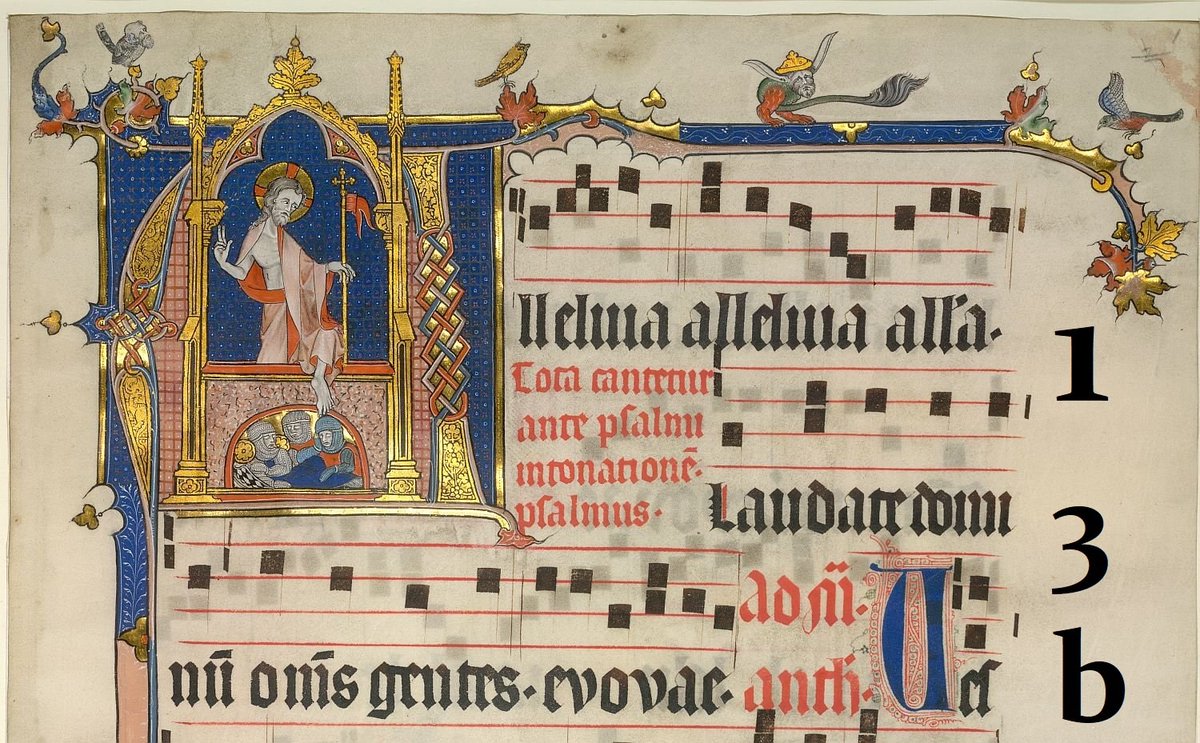 Alleluia alleluia all'a.
1
Tota cantetur
ante psalmi
intonationē.
psalmus.
Laudate domi
3
Ad
nū om̄s gentes. evovae. anth̄. Ves
b